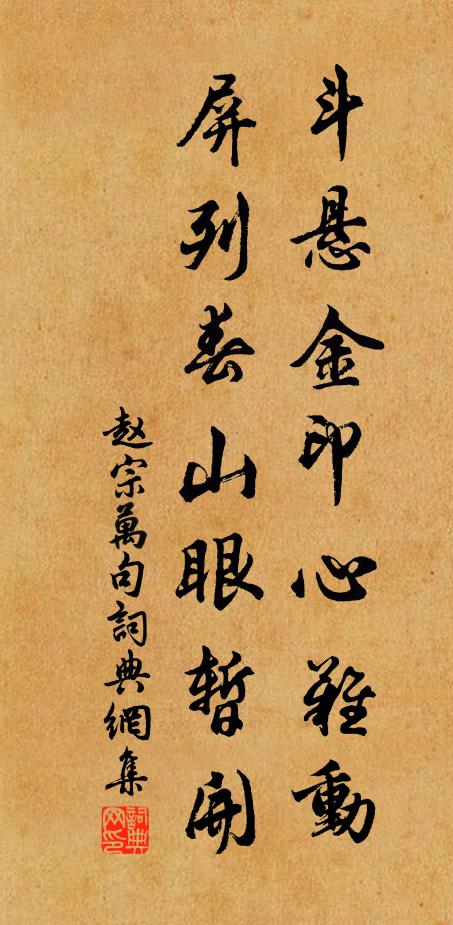 斗悬金印心難動
屏列春山眼暫開
赵宗萬句詞典網集
詞典网印